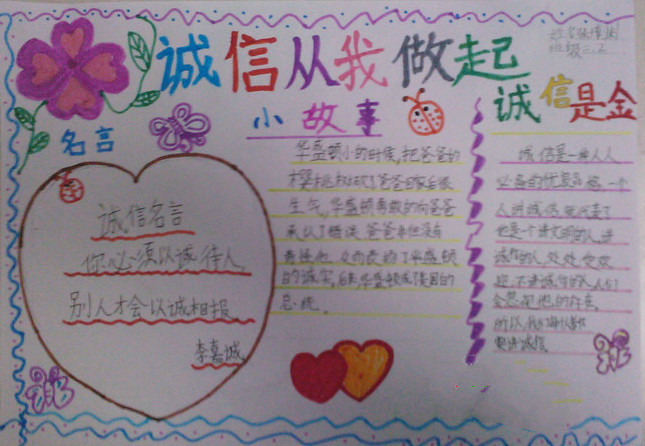 诚信从我做起
班级二.2
名言
诚信名言
你必须以诚待人,
别人才会以诚相报。
李嘉诚。
小故事
华盛顿小的时候,把爸爸的
樱桃树砍了爸爸回家后很
生气,华盛顿勇敢的向爸爸
承认了错误,爸爸不但没有
的诚实,后来,华盛顿成了美国的
总统。
诚信是金
诚信是一种人人
必备的优良品格,一个
人讲诚信,就代表了
他是个讲文明的人,讲
诚信的人,处处受欢
迎,不讲诚信的人,人们
会忽视他的存在,
所以,我们每人都
要讲诚信。